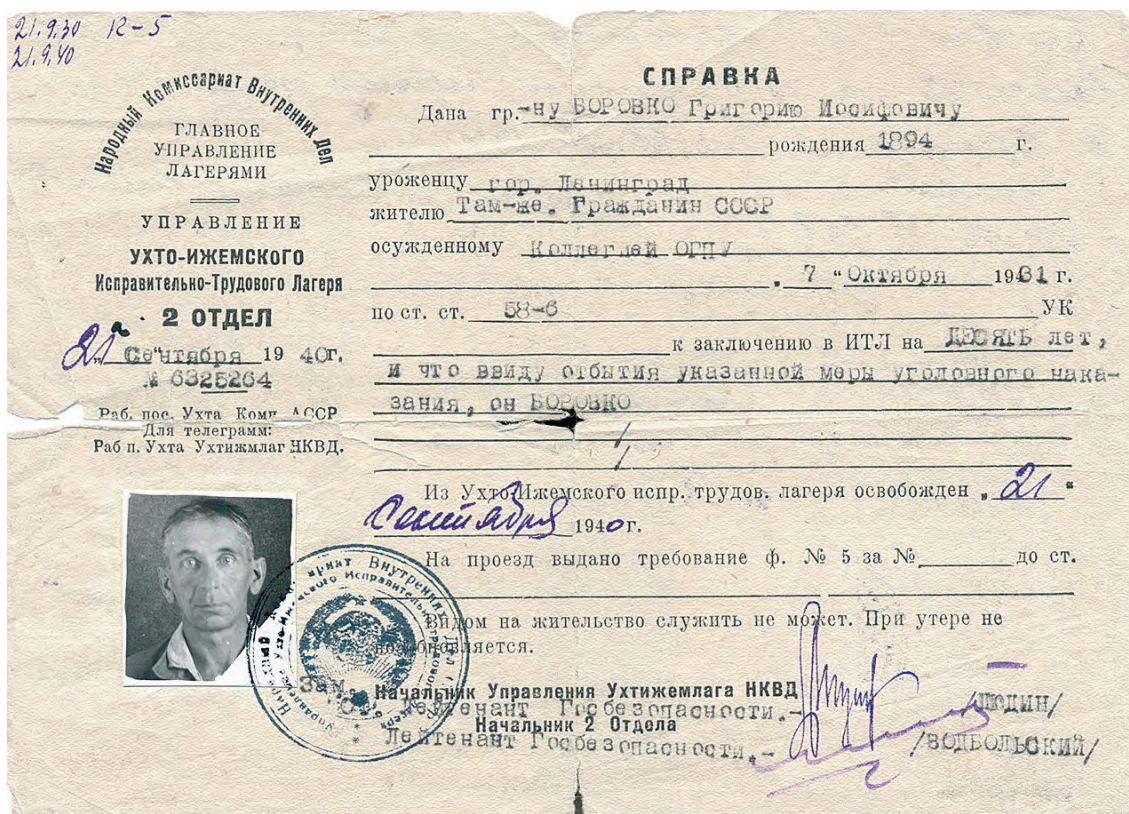 21.9.30 К-5
21.9.40
Народный Комиссариат Внутренних Дел
ГЛАВНОЕ
УПРАВЛЕНИЕ
ЛАГЕРЯМИ
УПРАВЛЕНИЕ
УХТО-ИЖЕМСКОГО
Исправительно-Трудового Лагеря
2 ОТДЕЛ
„21" Сентября 1940г.
№ 6325264
Раб. пос. Ухта Коми АССР
Для телеграмм:
Раб п. Ухта Ухтижмлаг НКВД.
СПРАВКА
Дана гр.-ну БОРОВКО Григорию Иосифовичу
рождения 1894 г.
уроженцу гор. Ленинград
жителю Там-же. Гражданин СССР
осужденному Коллегией ОГПУ
„ 7 " Октября 1931 г.
по ст. ст. 58-6 УК
к заключению в ИТЛ на ДЕСЯТЬ лет,
и что ввиду отбытия указанной меры уголовного нака-
зания, он БОРОВКО
Из Ухто-Ижемского испр. трудов. лагеря освобожден „ 21 "
Сентября 1940г.
На проезд выдано требование ф. № 5 за № до ст.
Видом на жительство служить не может. При утере не
возобновляется.
Зам. Начальник Управления Ухтижемлага НКВД
Ст. Лейтенант Госбезопасности.- /ШОДИН/
Начальник 2 Отдела
Лейтенант Госбезопасности.- /ВОДБОЛЬСКИЙ/